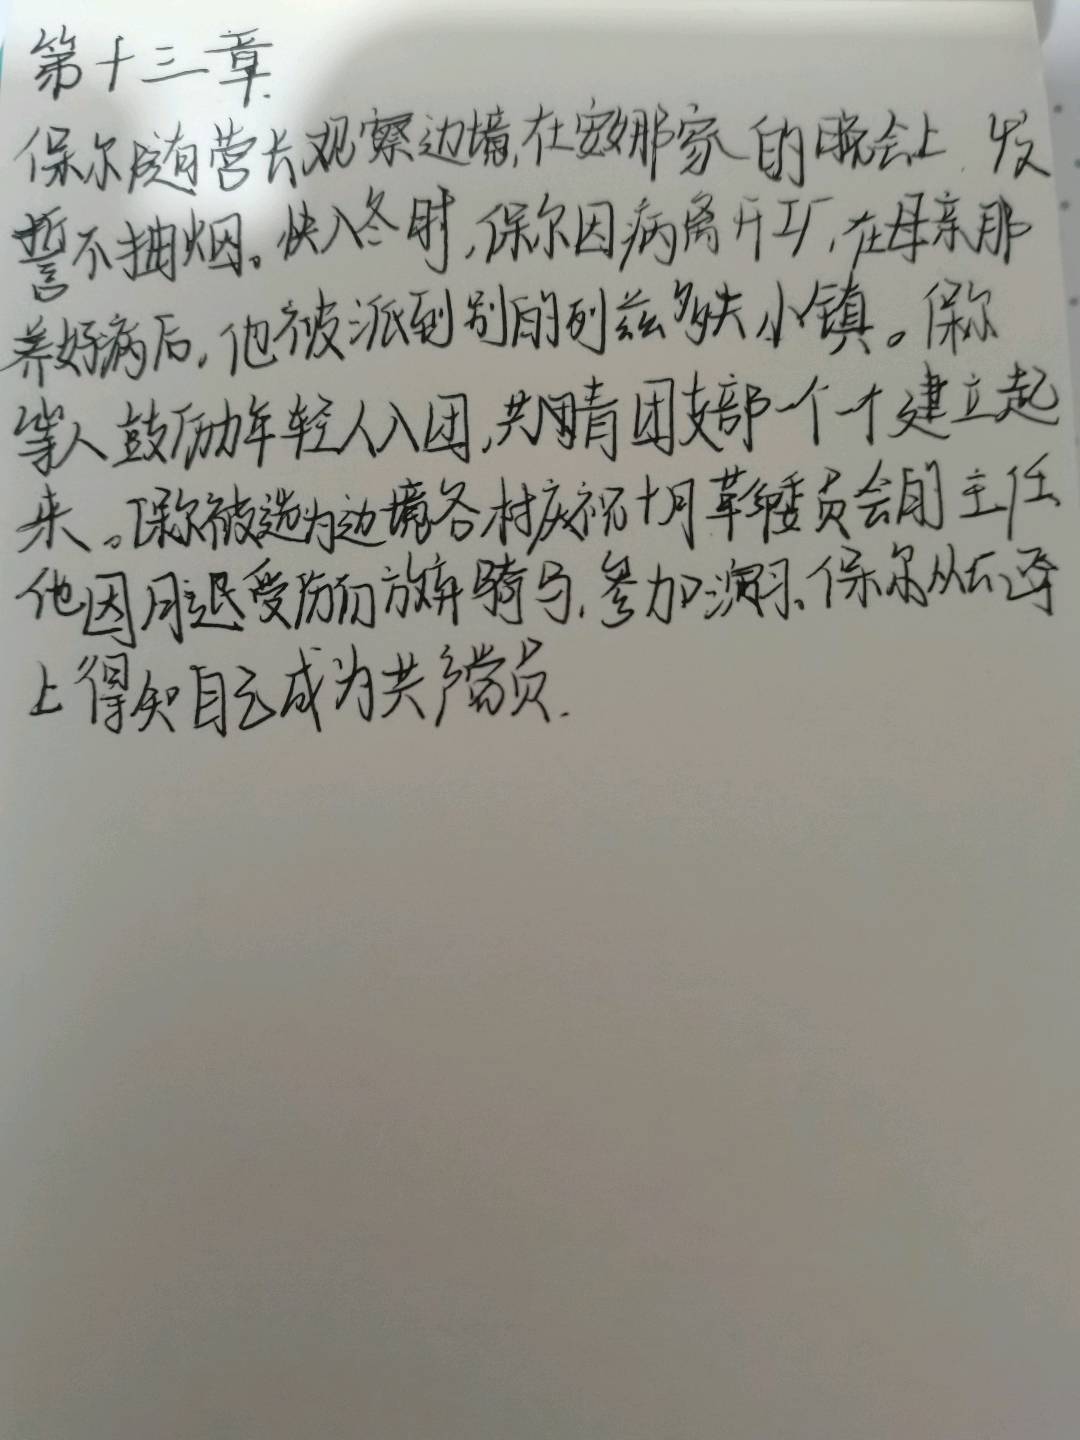 第十三章
保尔随营长观察边境,在安娜家的晚会上,发
誓不抽烟。快入冬时,保尔因病离开工厂,在母亲那
养好病后,他被派到别的列兹多夫小镇。保尔
等人鼓励年轻人入团,共青团支部一个个建立起
来。保尔被选为边境各村庆祝十月革命委员会的主任
他因腿受伤而放弃骑马,参加演习、保尔从
上得知自己成为共产党员.